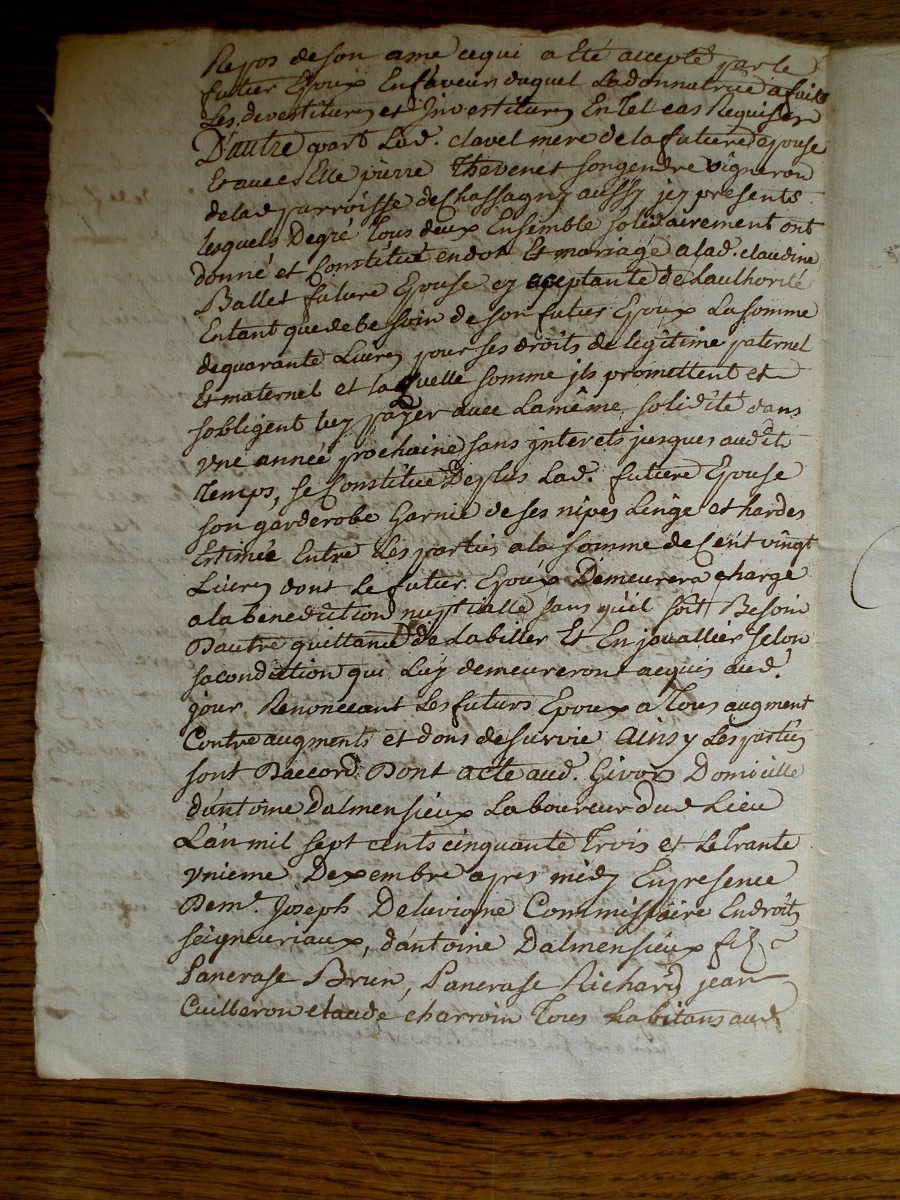 Repos de son ame ce qui a Eté accepté par le
futur Epoux En faveur duquel Ladonnatrice a fait
Les devestitures et Investitures En Tel cas Requises
D'autre part Lad. clavel mere de la future Epouse
Et avec Elle pierre Thevenet son gendre vigneron
de lad parroisse de Chassagny aussy icy presents
lesquels De gré Tous deux Ensemble solidairement ont
donné et Constitué en dot Et mariage a lad. claudine
Ballet future Epouse cy aceptante de Lauthorité
Entant que de besoin de son futur Epoux La somme
de quarante Livres pour ses droits de legitime paternel
Et maternel et laquelle somme ils promettent et
sobligent luy payer avec La même solidité dans
une année prochaine sans interets jusques audit
Temps, se Constitue De plus Lad. future Epouse
son garderobe Garnie de ses nipes Linge et hardes
Estimée Entre Les parties a la somme de Cent vingt
Livres dont Le futur Epoux Demeurera chargé
a la benediction nuptialle sans qu'il soit Besoin
D'autre quittance De Labiller Et En jouallier selon
sa condition qui Luy demeureront acquis aud.
jour Renoncant Les futurs Epoux a Tous augment
Contre augments et dons de survie Ainsy Les parties
sont Daccord Dont acte aud. Givors Domicille
d'antoine Dalmensieux Laboureur dud Lieu
L'an mil sept cents cinquante Trois et Le Trante
unieme Dexembre apres midy En presence
De mr. Joseph Delavigne Commissaire En droits
seigneuriaux, d'antoine Dalmensieux fils
Pancrase Brun, Pancrase Richard, jean
Cuilleron claude charroin Tous habitans aud